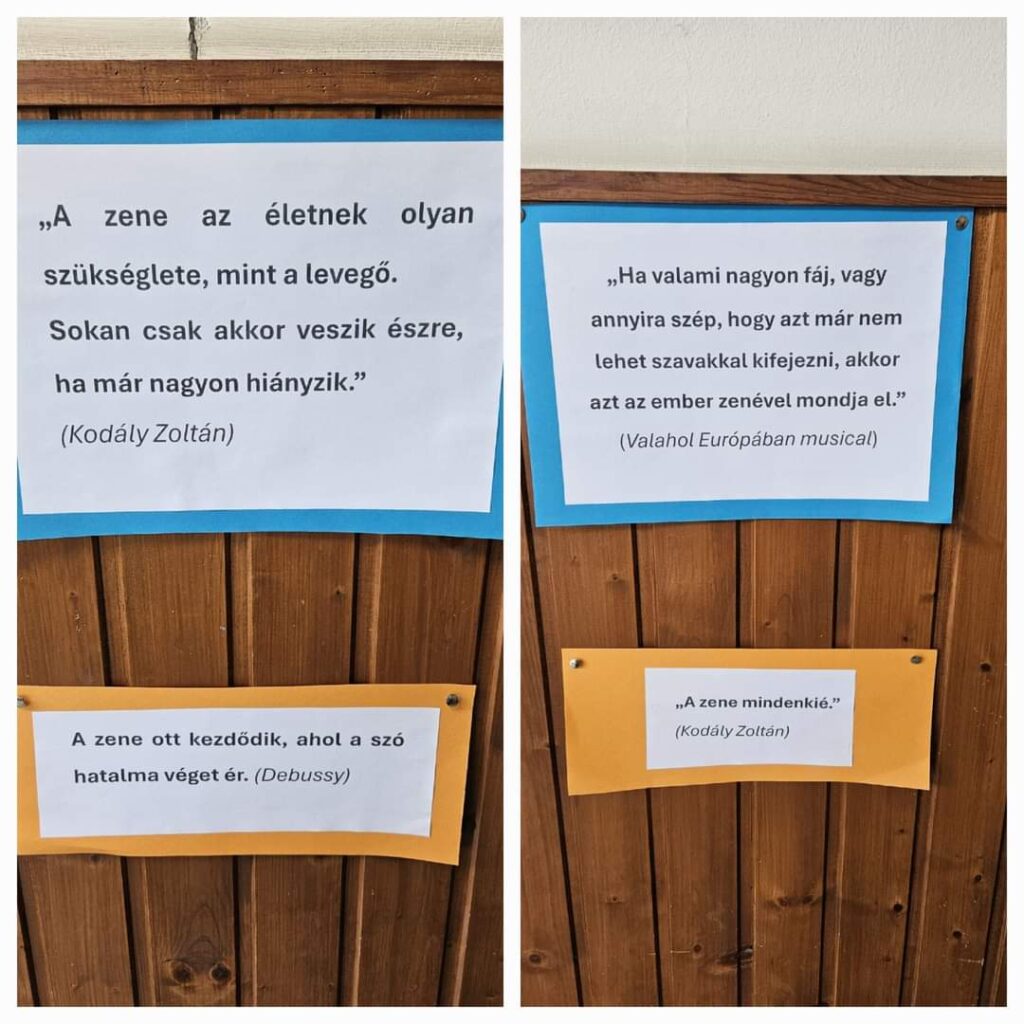 „A zene az életnek olyan
szükséglete, mint a levegő.
Sokan csak akkor veszik észre,
ha már nagyon hiányzik.”
(Kodály Zoltán)
A zene ott kezdődik, ahol a szó
hatalma véget ér. (Debussy)
„Ha valami nagyon fáj, vagy
annyira szép, hogy azt már nem
lehet szavakkal kifejezni, akkor
azt az ember zenével mondja el.”
(Valahol Európában musical)
„A zene mindenkié.”
(Kodály Zoltán)